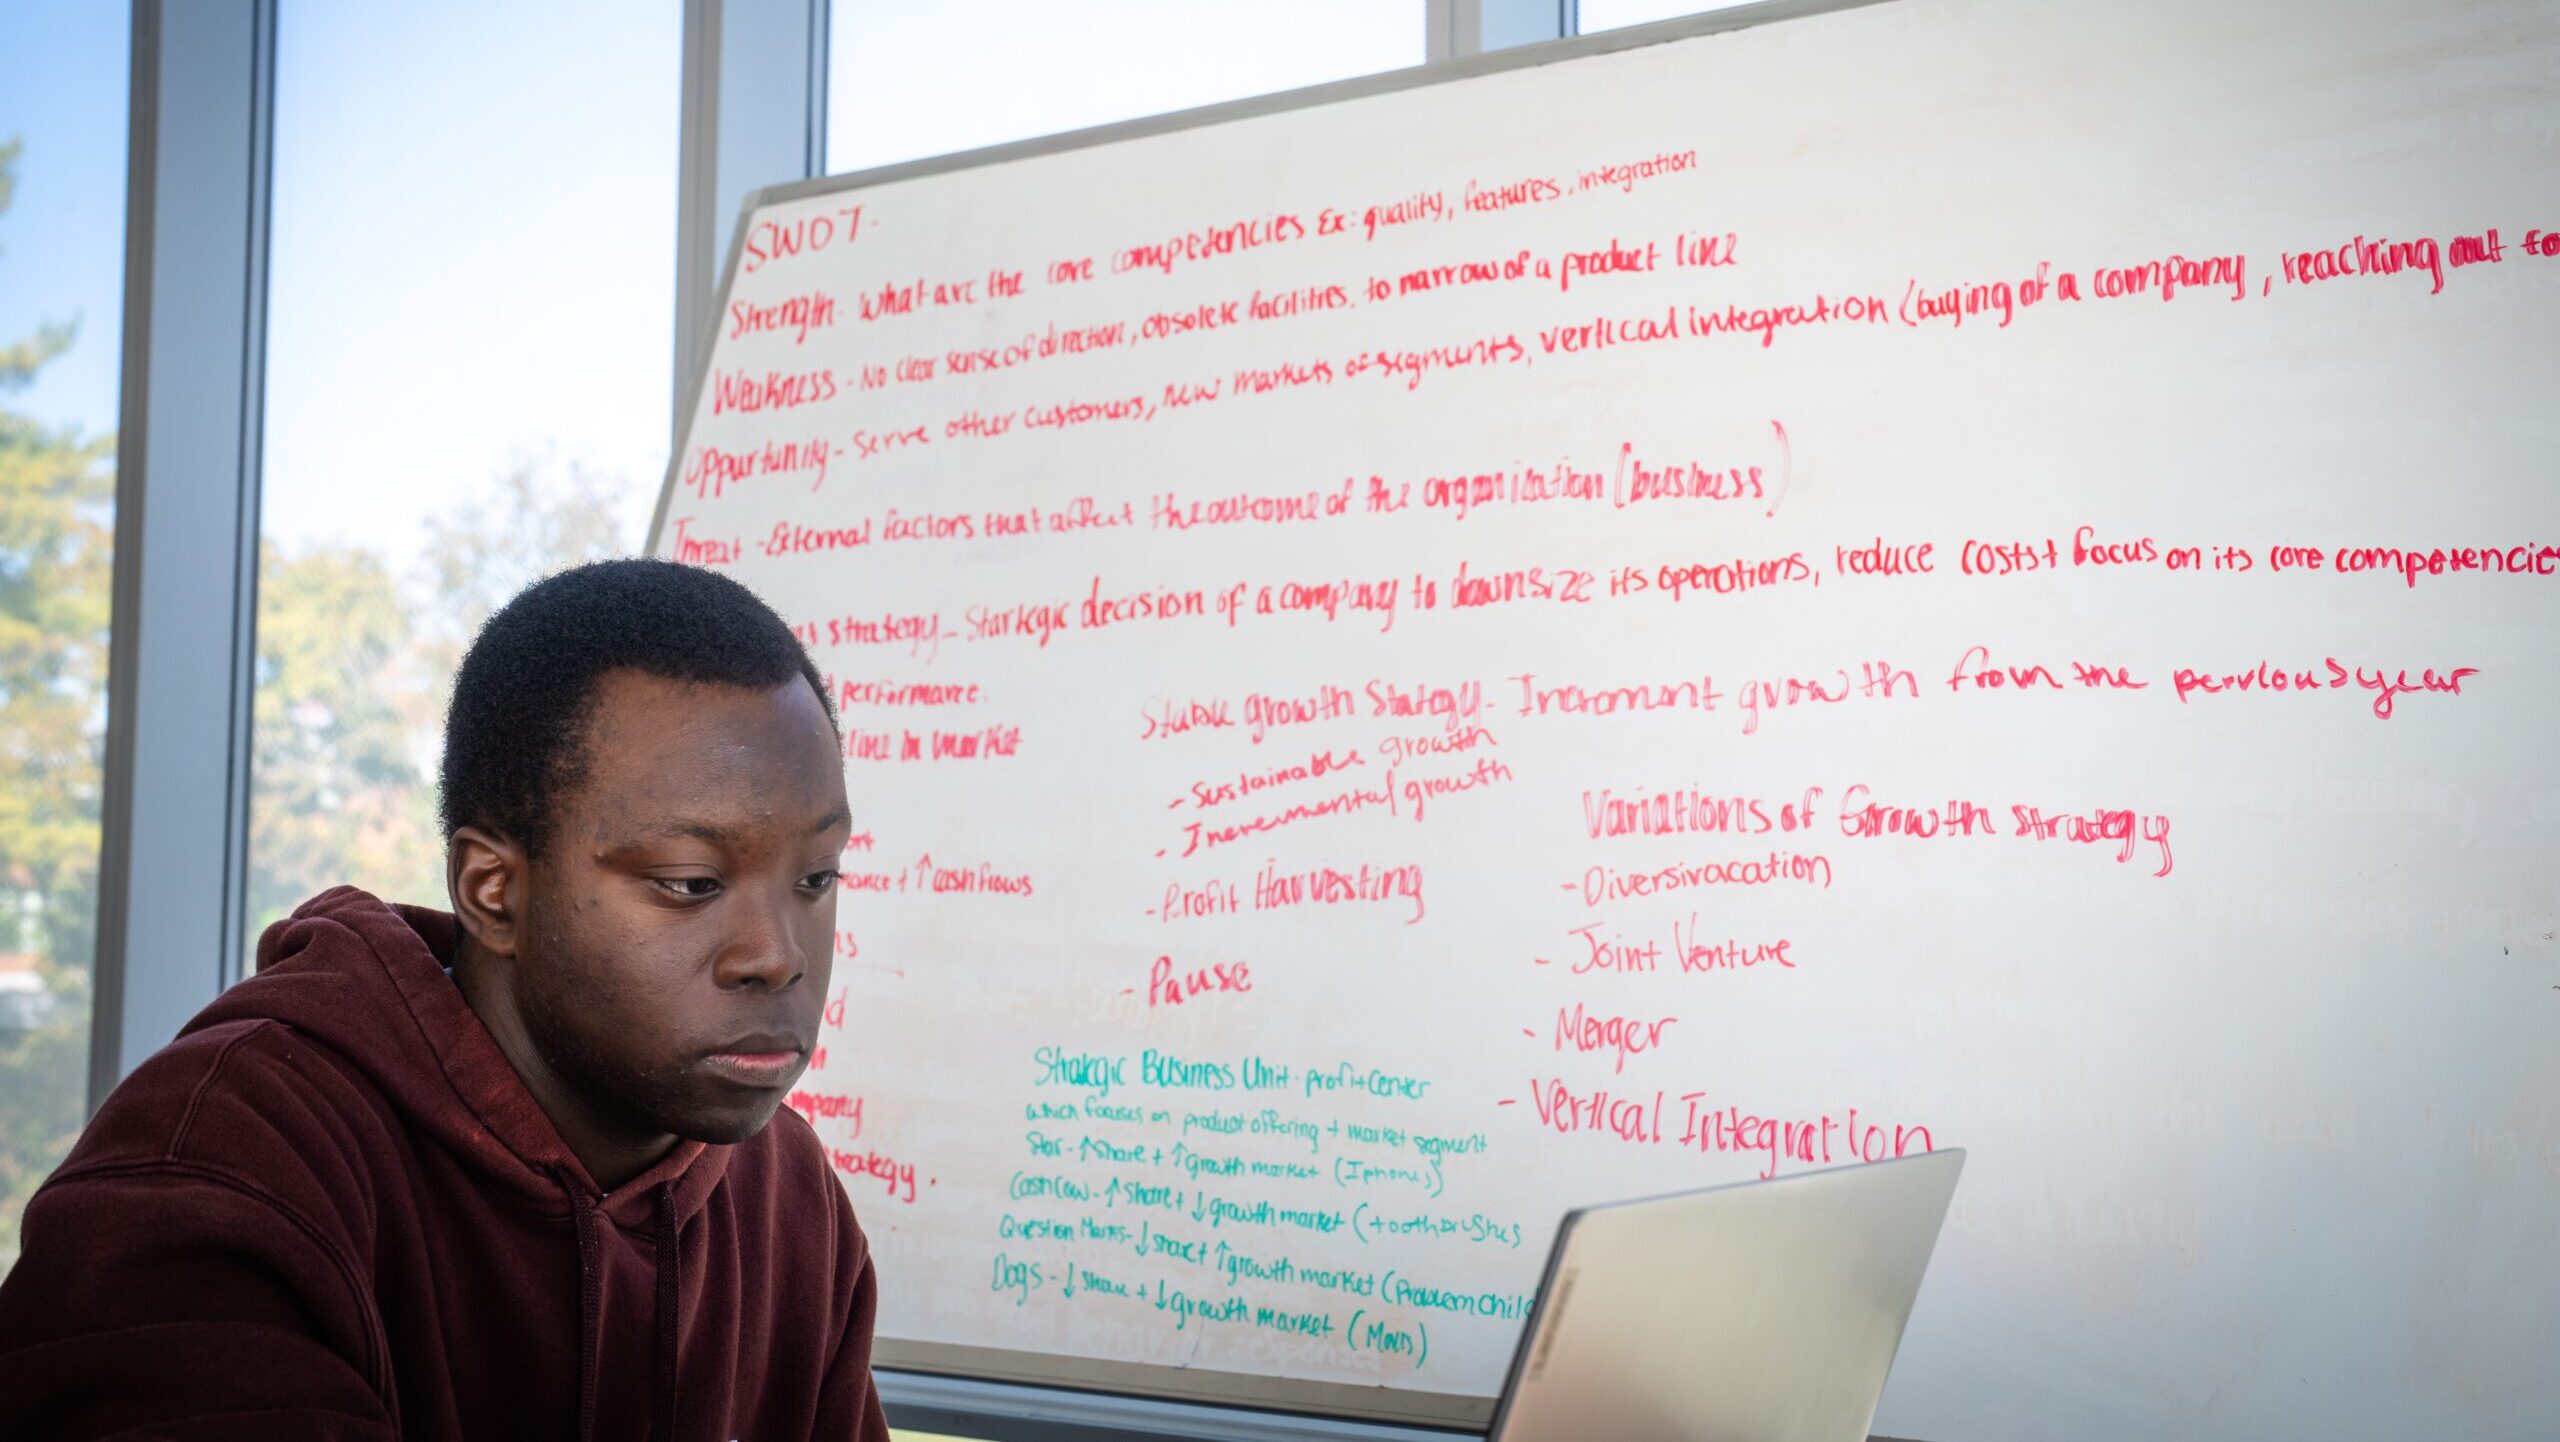 SWOT-
Strength- What are the core competencies Ex: quality, features, integration
Weakness - No clear sense of direction, obsolete facilities, to narrow of a product line
Oppurtunity - Serve other customers, new markets or segments, vertical integration (buying of a company, reaching out to
Threat - External factors that affect the outcome of the organization (business)
strategy - Startegic decision of a company to downsize its operations, reduce costs + focus on its core competencie
performance.
line in market
Stable growth Stategy- Increment growth from the pervious year
- Sustainable growth
- Incremental growth
+ ↑ cash flows
- Profit Harvesting
- Pause
Variations of Growth strategy
- Diversivacation
- Joint Venture
- Merger
- Vertical Integration
Strategic Business Unit - profit center
which focuses on product offering + market segment
Star - ↑ share + ↑ growth market (Iphones)
Cash Cow - ↑ share + ↓ growth market (toothbrushes
Question Marks - ↓ share + ↑ growth market (Problem Child
Dogs - ↓ share + ↓ growth market